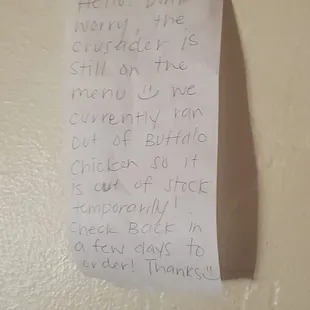 Hello! Don't
worry, the
crusader is
still on the
menu we
currently ran
out of Buffalo
Chicken so it
is out of stock
temporarily!
Check Back in
a few days to
order! Thanks